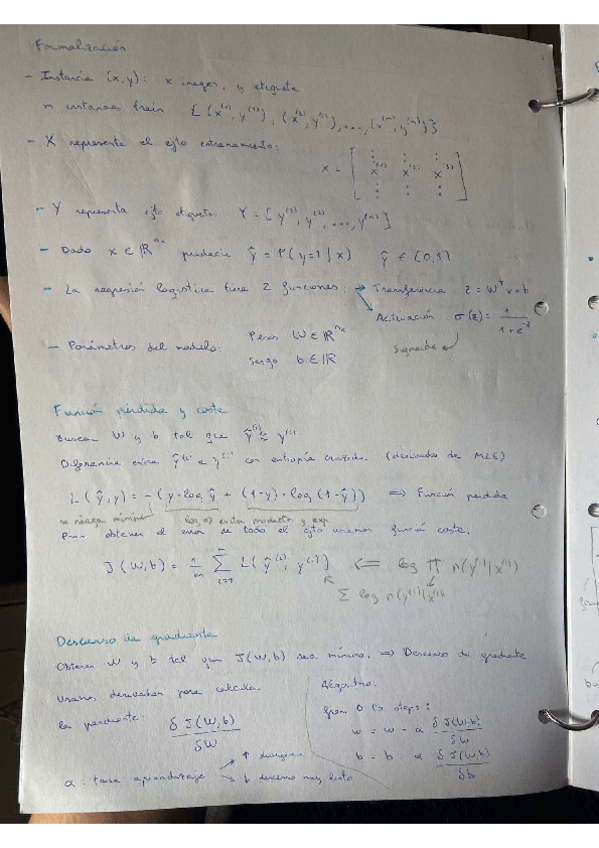 Formalización
- Instancia (x,y): x imagen, y etiqueta
n instancias train {(x⁽¹⁾, y⁽¹⁾), (x⁽²⁾, y⁽²⁾), ..., (x⁽ᵐ⁾, y⁽ᵐ⁾)}
- X representa el cjto entrenamiento:
X = [ x⁽¹⁾ x⁽²⁾ ]
- Y representa cjto etiquetas Y = [y⁽¹⁾, y⁽²⁾, ..., y⁽ᵐ⁾]
- Dado x ∈ ℝⁿˣ predecir ŷ = P(y=1|x) ŷ ∈ (0,1)
- La regresión logística tiene 2 funciones: Transferencia z = Wᵀx + b
Activación σ(z) = 1 / (1 + e⁻ᶻ)
Sigmoide
- Parámetros del modelo: Pesos W ∈ ℝⁿˣ
Sesgo b ∈ ℝ
Función pérdida y coste
Buscar W y b tal que ŷ⁽ⁱ⁾ ≈ y⁽ⁱ⁾
Diferencia entre ŷ⁽ⁱ⁾ e y⁽ⁱ⁾ con entropía cruzada (derivada de MLE)
L(ŷ,y) = -(y·log ŷ + (1-y)·log(1-ŷ)) ⇒ Función pérdida
se niega log evita producto y exp
Para obtener el error de todo el cjto usamos función coste.
J(W,b) = 1/m Σ L(ŷ⁽ⁱ⁾, y⁽ⁱ⁾) ⇐ log Π p(y⁽ⁱ⁾|x⁽ⁱ⁾)
Σ log p(y⁽ⁱ⁾|x⁽ⁱ⁾)
Descenso de gradiente
Obtener W y b tal que J(W,b) sea mínimo. ⇒ Descenso de gradiente
Usamos derivadas para calcular
la pendiente: δJ(W,b) / δW
Algoritmo:
from 0 to steps:
w = w - α δJ(W,b) / δW
b = b - α δJ(W,b) / δb
α: tasa aprendizaje ↑ divergencia
↓ descenso muy lento